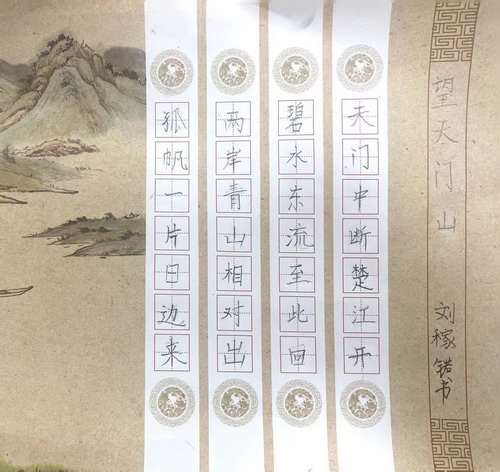 望天门山
天门中断楚江开
碧水东流至此回
两岸青山相对出
狐帆一片日边来
刘稼书